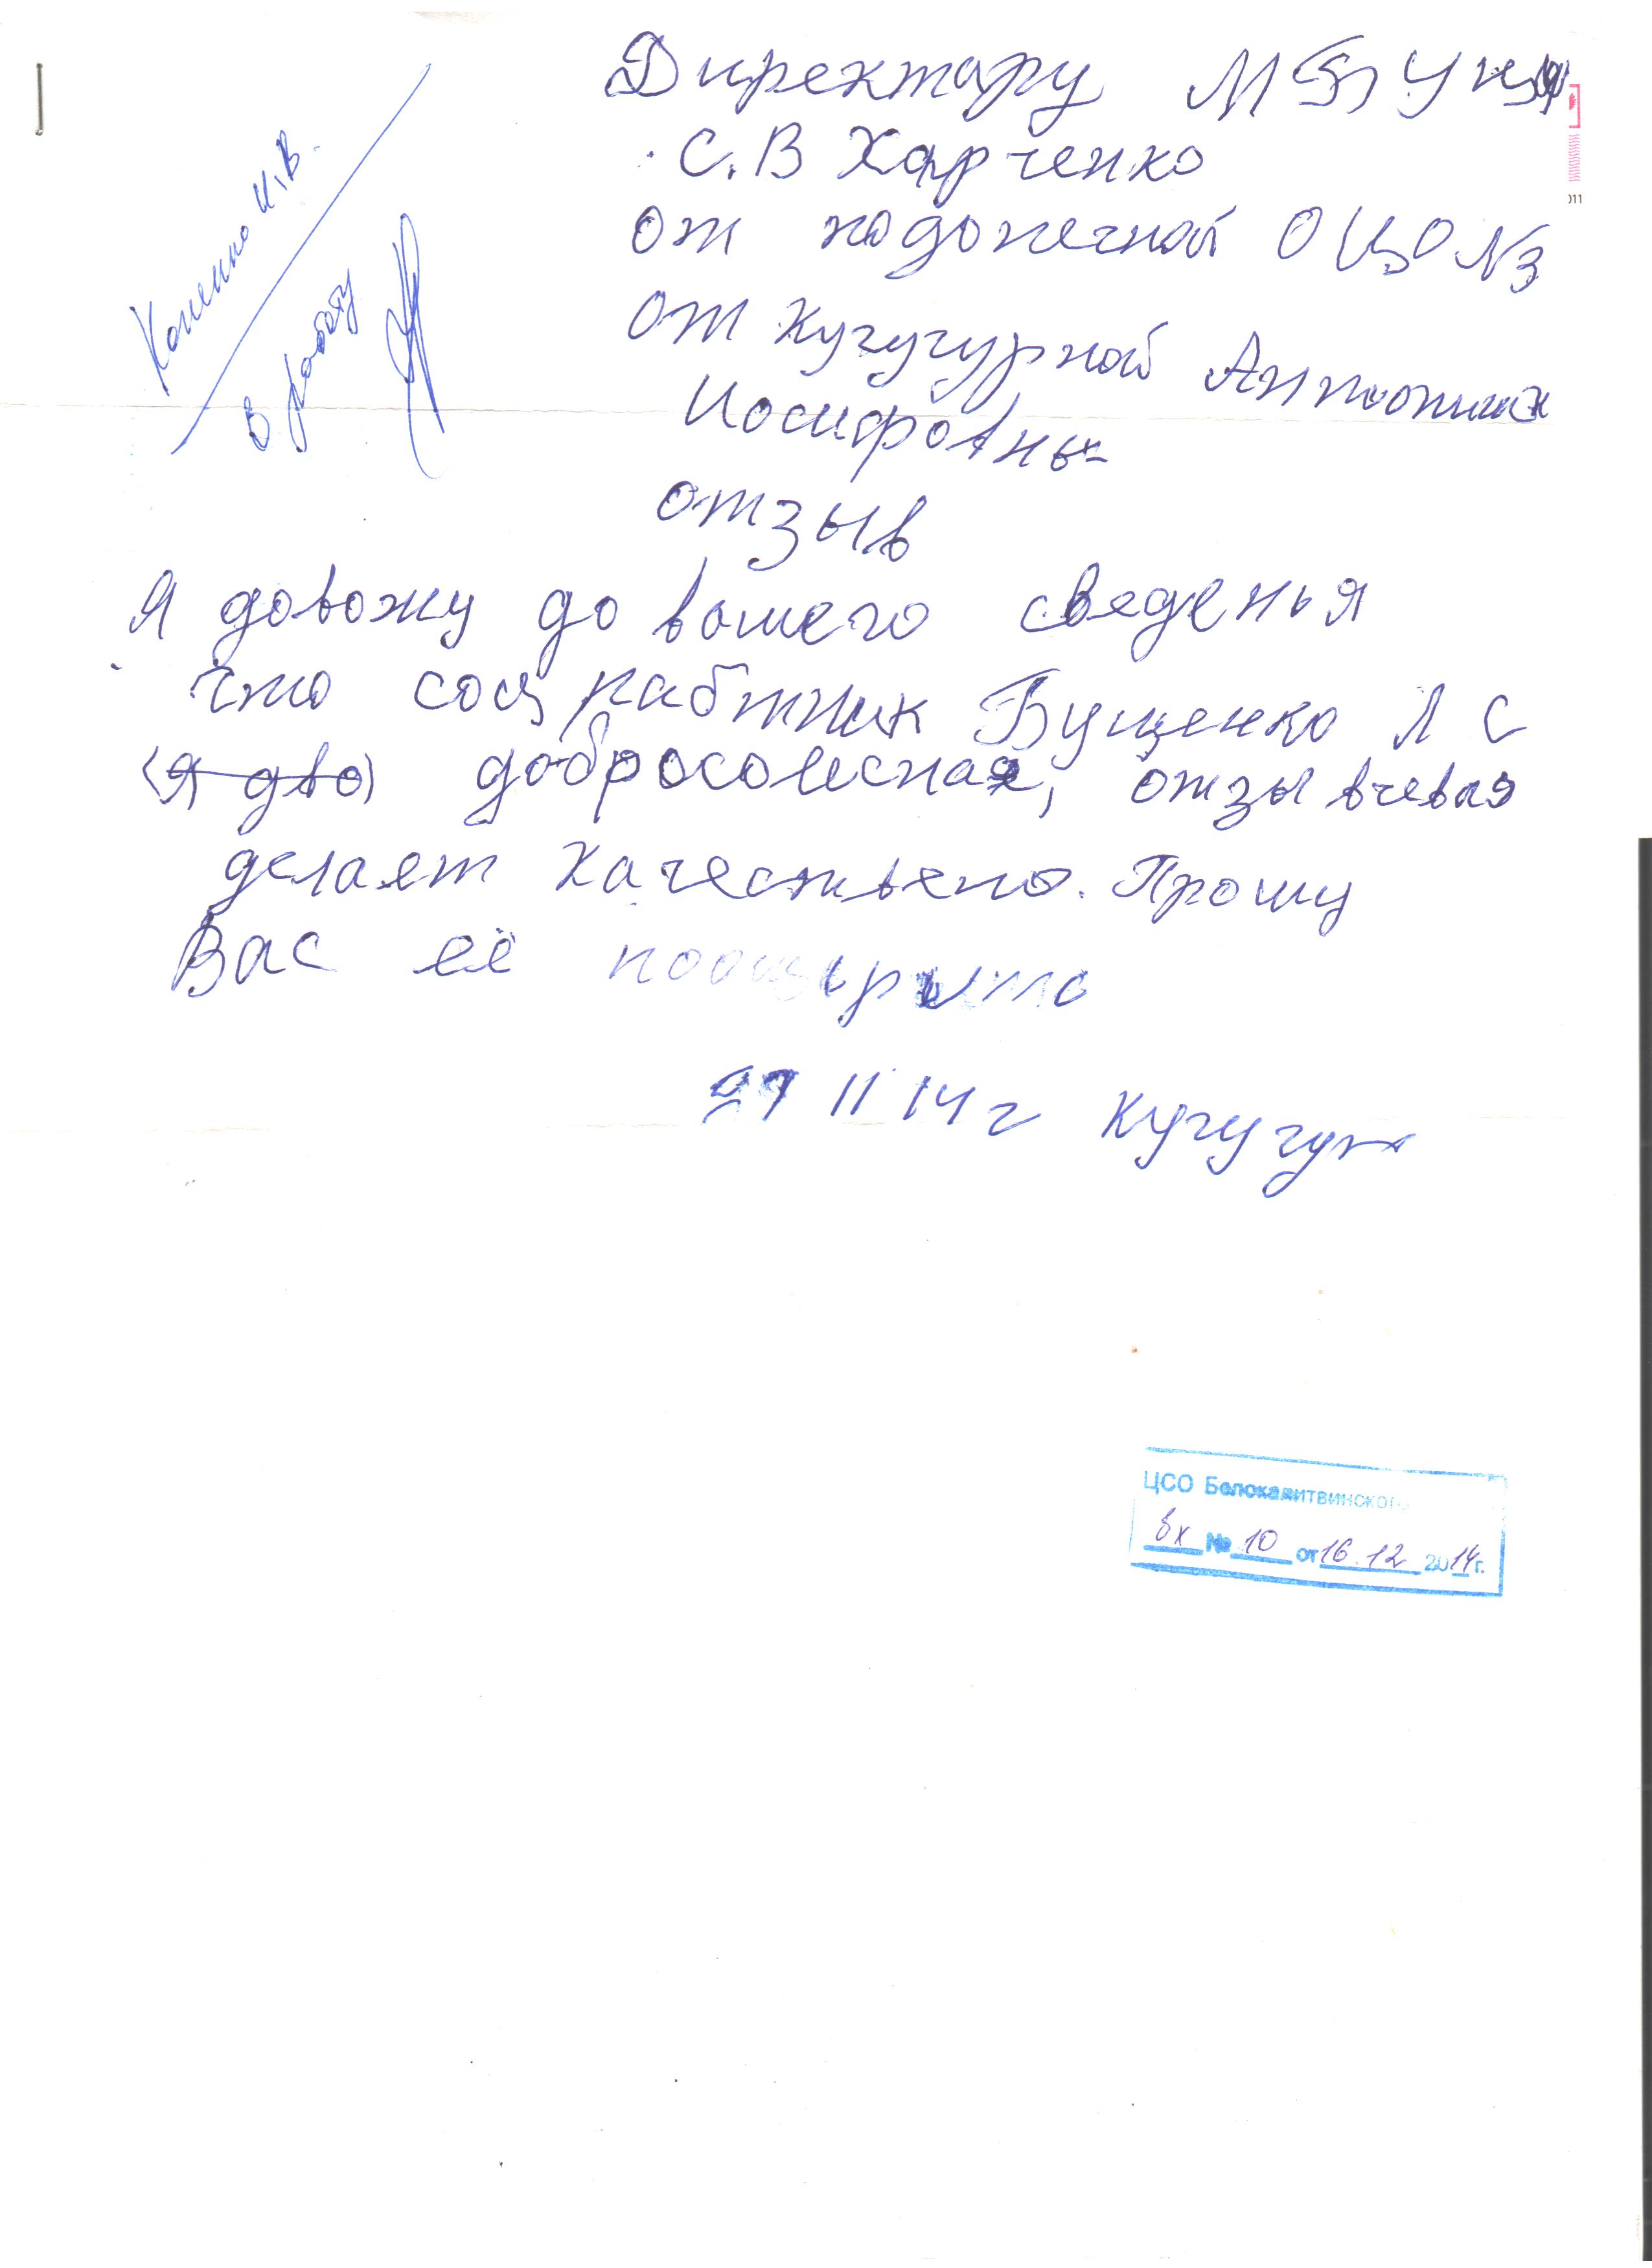 Директару МБУ
С.В Харченко
от подопечной ОЦО №3
от Кугугурной
Иосифовны
отзыв
Я довожу до вашего сведенья
что соц рабтник Бущенко Л С
(я дво) добросовесная, отзывчевая
делает качествено. Прошу
Вас её поощырыть
27 11 14 г Кугугур
В работу
ЦСО Белокалитвинского
вх № 10 от 16.12 2014 г.
011